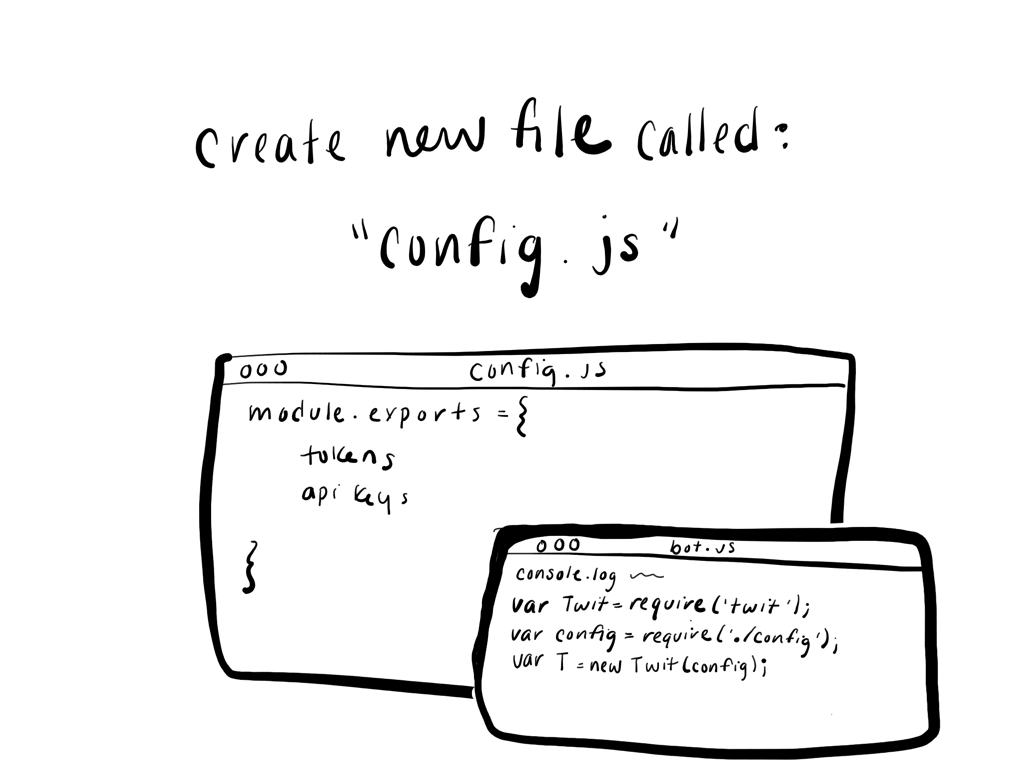 create new file called:
"config.js"
config.js
module.exports = {
tokens
api keys
}
bot.js
console.log
var Twit = require('twit');
var config = require('./config');
var T = new Twit(config);